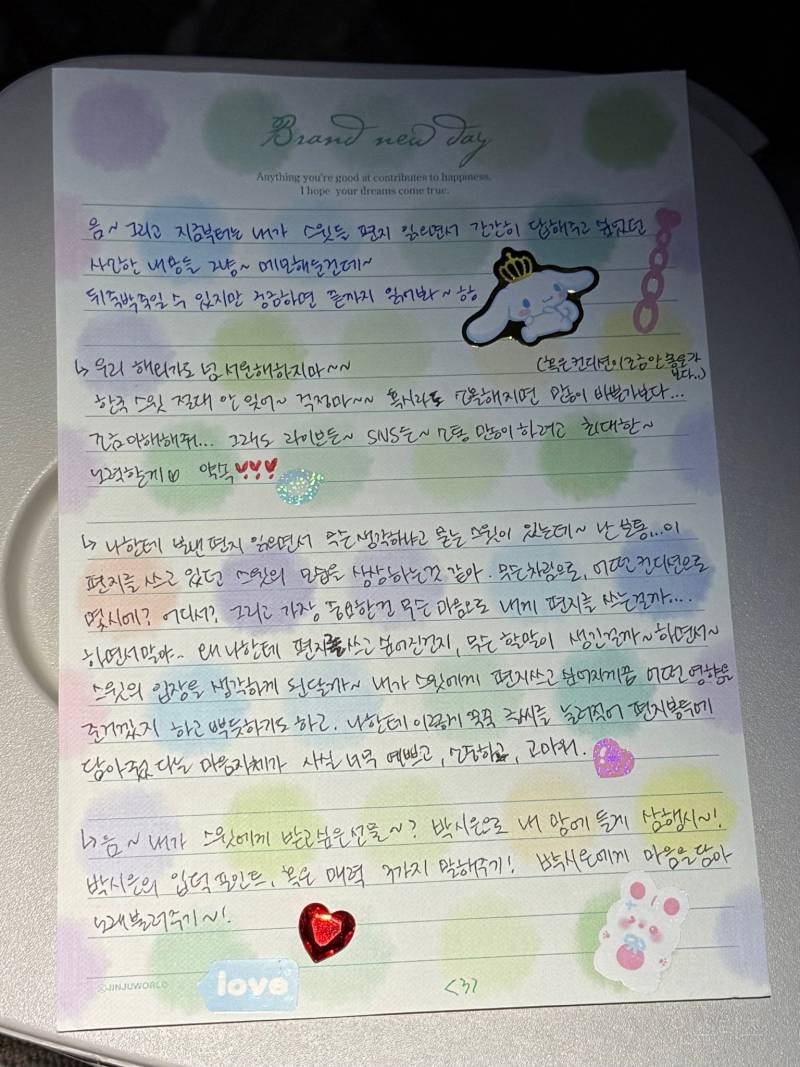 Brand new day
Anything you're good at contributes to happiness.
I hope your dreams come true.
음~ 그리고 지금부터는 내가 스윗들 편지 읽으면서 간간히 답해주고 싶었던
사소한 내용들 그냥~ 메모해둔건데~
뒤죽박죽일 수 있지만 궁금하면 끝까지 읽어봐~ 항
↳ 우리 해외가도 넘 서운해하지마~~
(혹은 컨디션이 조금 안 좋은가
보다..)
한국 스윗 절대 안 잊어~ 걱정마~~ 혹시라도 소홀해지면 많이 바쁜가보다...
조금 이해해줘... 그래도 라이브든~ SNS든~ 소통 많이 하려고 최대한~
노력할게 약속
↳ 나한테 보낸 편지 읽으면서 무슨생각하냐고 묻는 스윗이 있는데~ 난 보통...이
편지를 쓰고 있던 스윗의 모습을 상상하는것 같아. 무슨차림으로, 어떤 컨디션으로
몇시에? 어디서? 그리고 가장 중요한건 무슨 마음으로 내게 편지를 쓰는걸까...
하면서 말야.. 왜 나한테 편지를 쓰고 싶어진건지, 무슨 할말이 생긴걸까~하면서~
스윗의 입장을 생각하게 된달까~ 내가 스윗에게 편지쓰고 싶어지게끔 어떤 영향을
준거겠지 하고 뿌듯하기도 하고. 나한테 이렇게 꾹꾹 글씨를 눌러적어 편지봉투에
담아줬다는 마음자체가 사실 너무 예쁘고, 소중하고, 고마워.
↳ 음~ 내가 스윗에게 받고싶은선물~? 박시은으로 내 맘에 들게 삼행시~!
박시은의 입덕포인트, 혹은 매력 3가지 말해주기! 박시은에게 마음을담아
노래불러주기~!
©JINJUWORLD
love
<3>